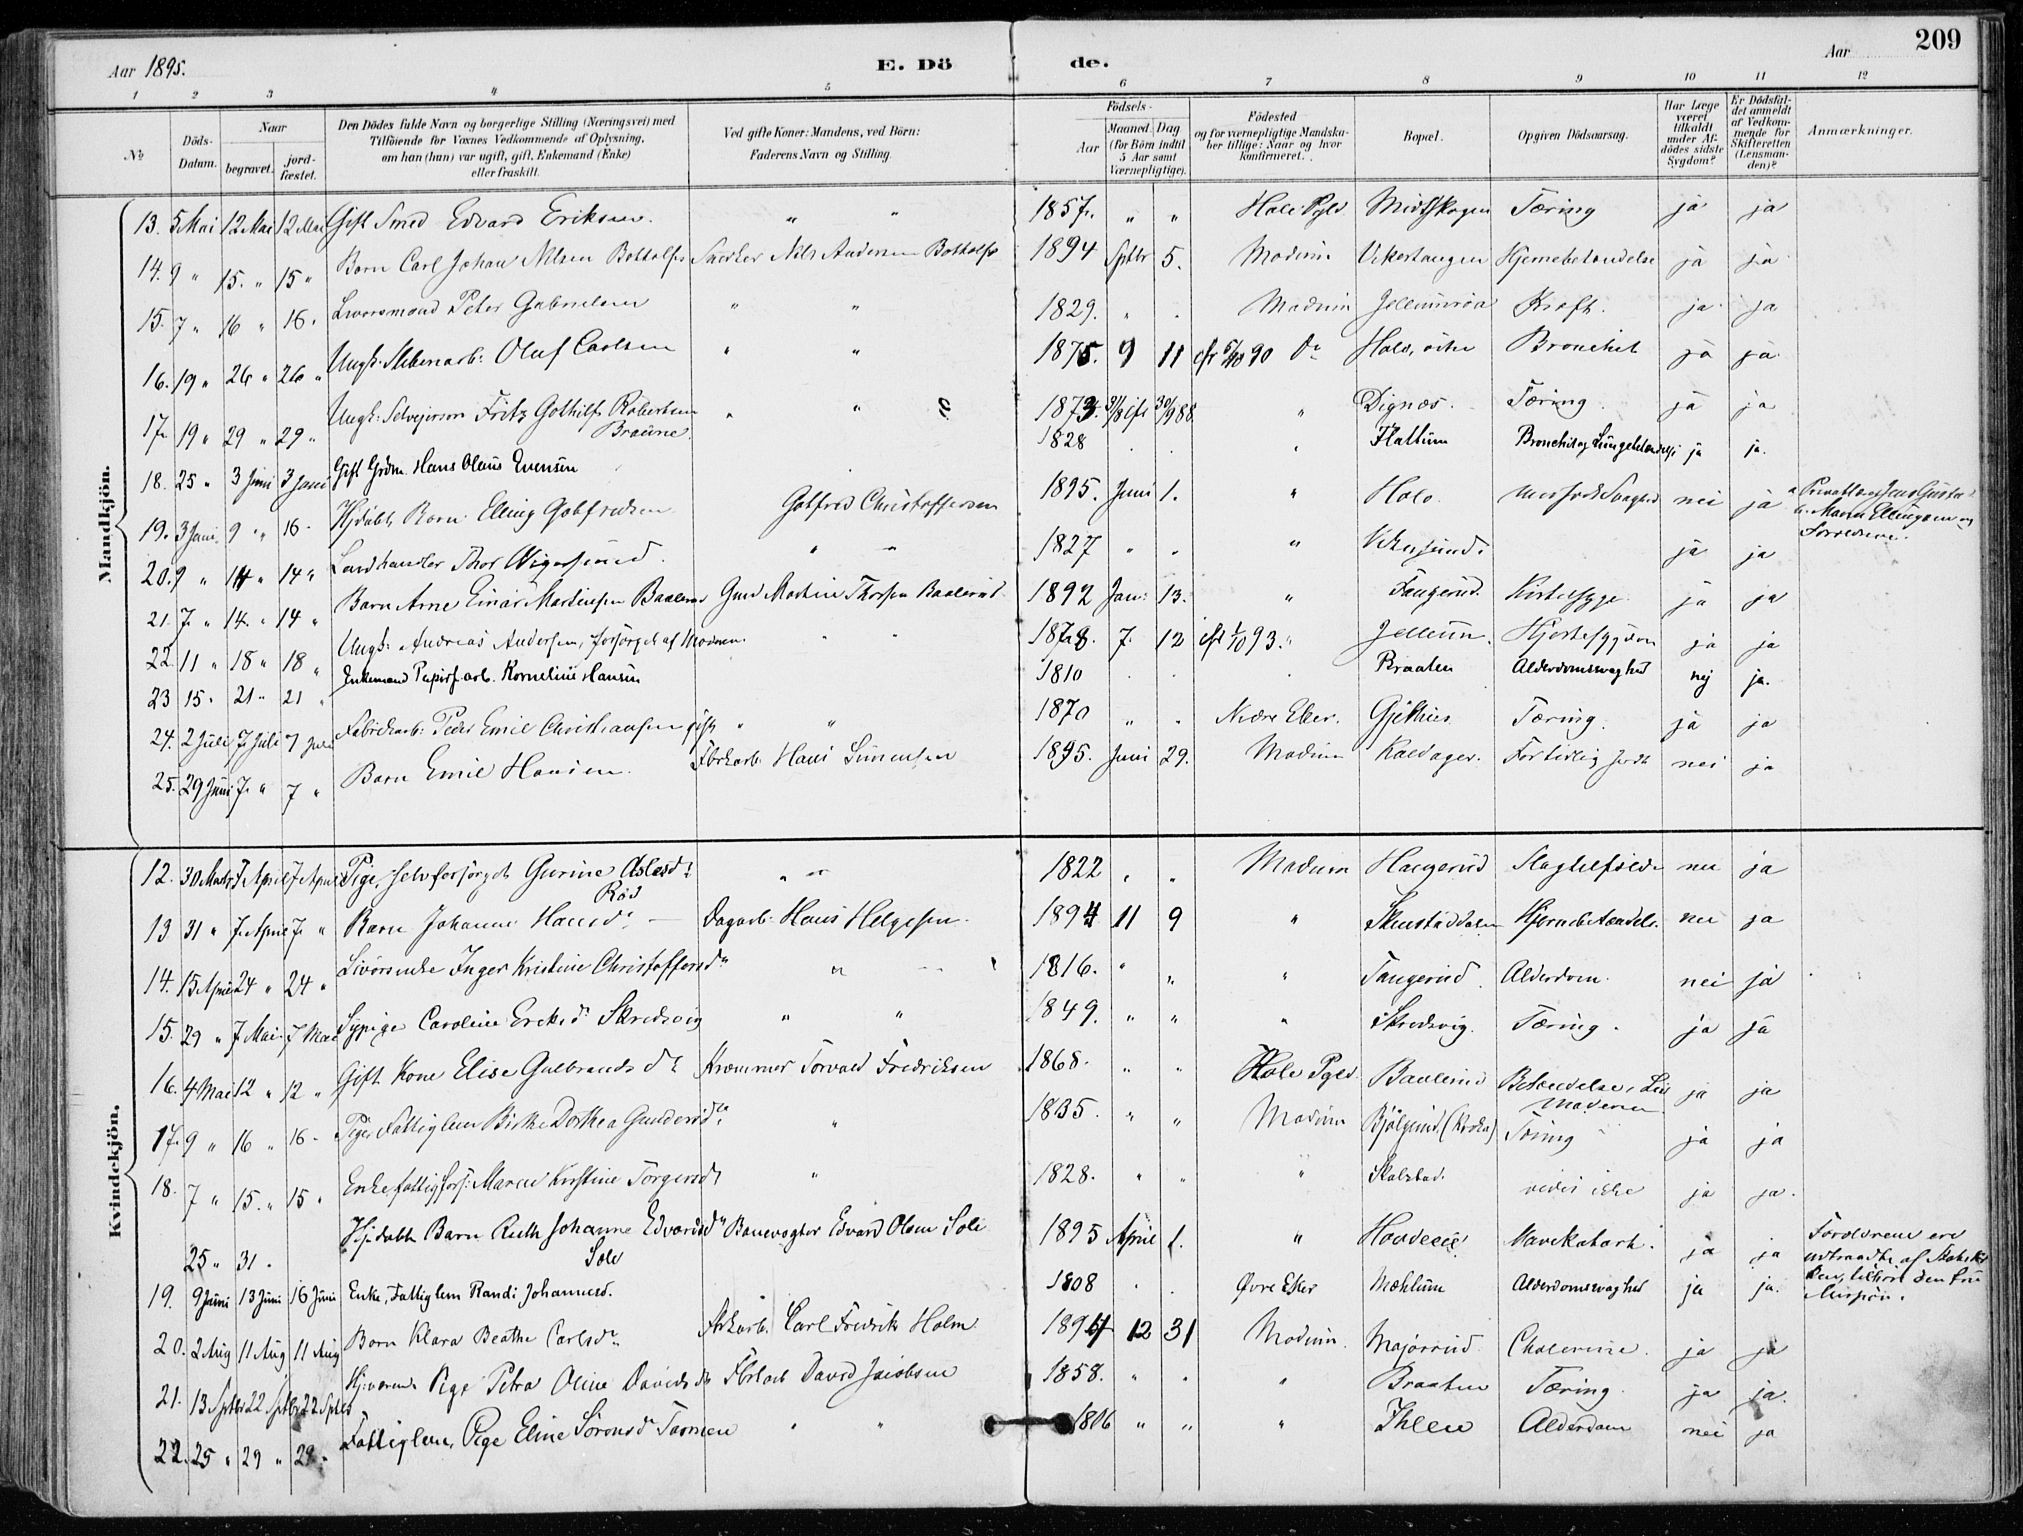 Aar 1895.
E. Dö
de.
Aar
209
1 2 3 4 5 6 7 8 9 10 11 12
№
Döds-Datum.
Naar
begravet.
jord-fæstet.
Den Dödes fulde Navn og borgerlige Stilling (Næringsvei) med
Tilföiende for Voxnes Vedkommende af Oplysning,
om han (hun) var ugift, gift, Enkemand (Enke)
eller fraskilt.
Ved gifte Koner: Mandens, ved Börn:
Faderens Navn og Stilling.
Födsels-
Aar
Maaned. Dag
(for Börn indtil
5 Aar samt
Værnepligtige).
Födested
og for værnepligtige Mandska-
ber tillige: Naar og hvor
konfirmeret.
Bopæl.
Opgiven Dödsaarsag.
Har Læge
været
tilkaldt
under Af-
dödes sidste
Sygdom?
Er Dödsfal-
det anmeldt
af Vedkom-
mende for
Skifteretten
(Lensman-
den)?
Anmærkninger.
Mandkjön.
13. 5 Mai 12 Mai 12 Mai Gift Smed Edvard Eriksen. " " 1857. " " Hole Pgld Midtskogen Tæring ja ja
14. 9 " 15. " 15 " Barn Carl Johan Nilsen Bottolfs Snedker Nils Andersen Bottolfs 1894 Sptbr 5. Modum Vikertangen Hjernebetændelse ja ja
15. 7 " 16 " 16 " Livørsmand Peter Gabrielsen " " 1829. " . Modum Kræft. ja ja
16. 19 " 26 " 26 " Ungk: Oluf Carlsen " " 1875. 9 11 cfr 5/10 90 Do Hole, Bronchit ja ja
17. 19 " 29 " 29 " Ungk: Selveierson Fritz Gothilf Robertsen Braune. " " 1873. cfr 30/9 88 " Dignæs. Tæring. ja ja
18. 25 " 3 Juni 3 Juni Gift Grdm. Hans Olaus Evensen 1828 . . " Flattum Bronchit og Lungebetændelse ja ja.
19. 3 Juni 9 " 16 " Hjdøbt Barn Elling Gotfredsen Gotfred Christoffersen 1895. Juni 1. " Hole. Medfødt Svaghed nei ja
Maren Ellingsen og Forældrene.
20. 9 " 14 " 14 " Landhandler Thor Wigersund. " " 1827 " " " Vikersund. ja ja
21. 7 " 14. " 14 " Barn Arne Einar Martinsen Baalerud Grd Martin Thorsen Baalerud 1892 Jan: 13. " Tangerud. Kirtelsyge. ja ja
22. 11 " 18 " 18 " Ungk: Andreas Andersen, forsørget af Moderen. " " 1878. 7. 12 cfr 1/10 93. " Jellum. Hjertesygdom ja ja
23 15 " 21 " 21 " Enkemand Papirf.arb. Kornelius Hansen 1810 . . . Braaten Alderdomssvaghed nej ja.
24. 2 Juli 7 Juli 7 Juli Fabrikarb: Peder Emil Christiansen gift " " 1870 " " Nedre Eker. Gjethus. Tæring. ja ja
25. 29 Juni 7. " 7 " Barn Emil Hansen. Fbrkarb. Hans Simensen 1895. Juni 29. Modum Kaldager. For tidlig født nei ja
Kvindekjön.
12. 30 Marts 7 April 7 April Pige, selvforsørget Gurine Aslesdr " " 1822 " " Modum Haugerud Slagtilfælde nei ja
13 31 " 7. April 7. " Barn Johanne Hansdr Rød Dagarb. Hans Helgesen. 1894 11 9 " Hjernebetændelse. nei ja
14. 15 April 24 " 24 " Livørsenke Inger Kristine Christoffersdr " " 1816. " " " Tangerud. Alderdom. nei ja
15. 29 " 7 Mai 7 Mai Sypige Caroline Eriksdr Skredsvig " " 1849. " " " Skredsvig. Tæring. ja ja
16. 4 Mai 12 " 12 " Gift Kone Elise Gulbrandsdr Kræmmer Torvald Fredriksen 1868. " " Hole Pgld. Baalerud Betændelse i Livmoderen ja ja
17. 9 " 16 " 16 " Pige Fattiglem Birthe Dorthea Gundersdr " 1835. " " Modum Tæring ja ja
18. 7 " 15. " 15 " Enke fattigfors: Maren Kirstine Torgersdr " 1828. " " " Skalstad. vides ikke ja ja.
25 " 31 " Hjdøbt Barn Ruth Johanne Edvardsdr Sole Banevogter Edvard Olsen Sole 1895 April 1. " Mavekatarh. ja ja Forældrene ere udtraadte af Statskirken, tilhøre den fri Misjon.
19. 9 Juni 13 Juni 16 Juni Enke, Fattiglem Randi Johannesd. 1808 . . Øvre Eker Mæhlum Alderdomssvaghed ja ja.
20. 2 Aug 11 Aug 11 Aug Barn Klara Beathe Carlsdr Fbrkarb. Carl Fredrik Holm 1894 12 31 Modum. Majorrud. Cholerine. ja ja
21. 13 Sptbr 22 Sptbr 22 Sptbr Hjemmev. Pige Petra Oline Davidsdr Fbrkarb David Jacobsen 1858. " " " Braaten Tæring. ja ja.
22. 25 " 29 " 29 " Fattiglem, Pige Eline Sørensd Taamen " " 1806 " " " Ihlen Alderdom nei ja